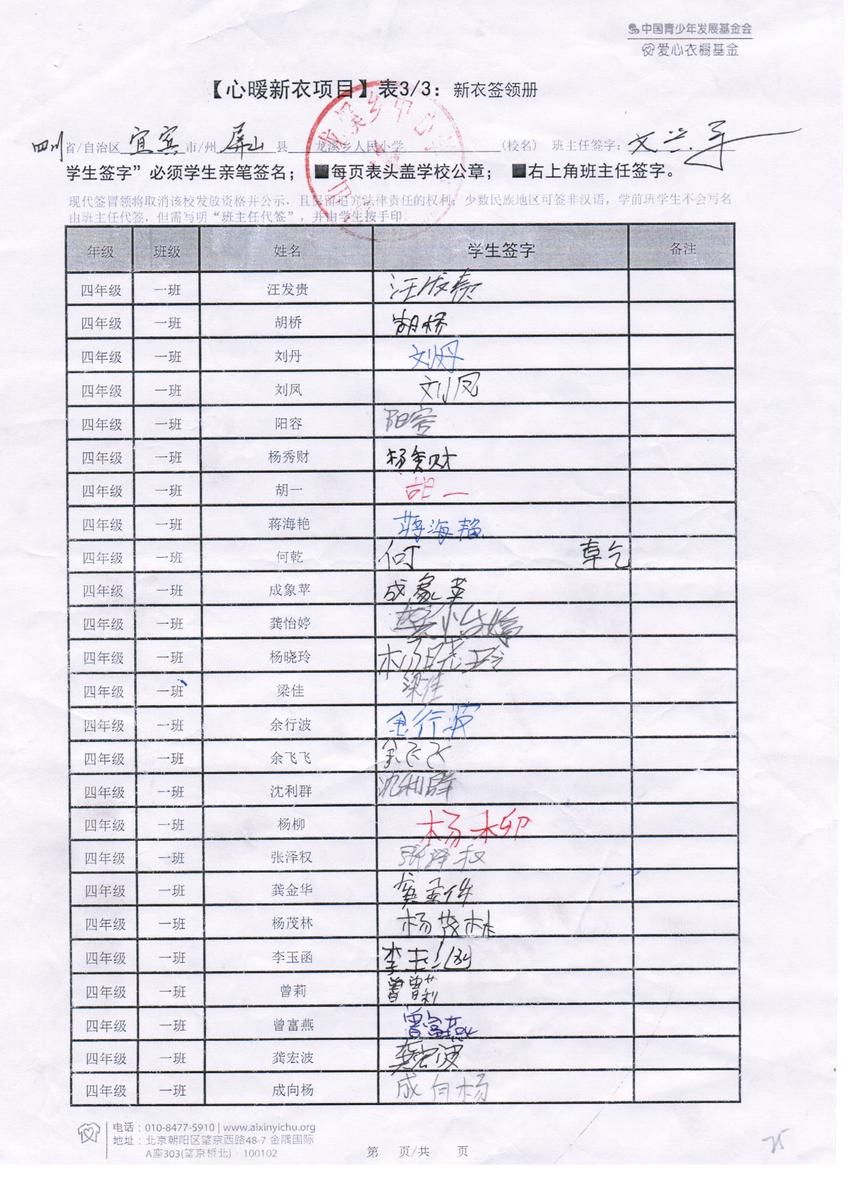 中国青少年发展基金会
爱心衣橱基金
【心暖新衣项目】表3/3：新衣签领册
四川省/自治区 宜宾 市/州 屏山 县 龙溪乡人民小学 (校名) 班主任签字：
学生签字”必须学生亲笔签名； ■每页表头盖学校公章； ■右上角班主任签字。
现代签冒领将取消该校发放资格并公示，且保留追究法律责任的权利；少数民族地区可签非汉语，学前班学生不会写名
由班主任代签，但需写明“班主任代签”，并由学生按手印。
年级 班级 姓名 学生签字 备注
四年级 一班 汪发贵 汪发贵
四年级 一班 胡桥 胡桥
四年级 一班 刘丹 刘丹
四年级 一班 刘凤 刘凤
四年级 一班 阳容 阳容
四年级 一班 杨秀财 杨秀财
四年级 一班 胡一 胡一
四年级 一班 蒋海艳 蒋海艳
四年级 一班 何乾 何乾
四年级 一班 成象苹 成象苹
四年级 一班 龚怡婷 龚怡婷
四年级 一班 杨晓玲 杨晓玲
四年级 一班 梁佳 梁佳
四年级 一班 余行波 余行波
四年级 一班 余飞飞 余飞飞
四年级 一班 沈利群 沈利群
四年级 一班 杨柳 杨柳
四年级 一班 张泽权 张泽权
四年级 一班 龚金华 龚金华
四年级 一班 杨茂林 杨茂林
四年级 一班 李玉函 李玉函
四年级 一班 曾莉 曾莉
四年级 一班 曾富燕 曾富燕
四年级 一班 龚宏波 龚宏波
四年级 一班 成向杨 成向杨
电话：010-8477-5910 | www.aixinyichu.org
地址：北京朝阳区望京西路48-7 金隅国际
A座303(望京桥北) · 100102
第 页/共 页
25